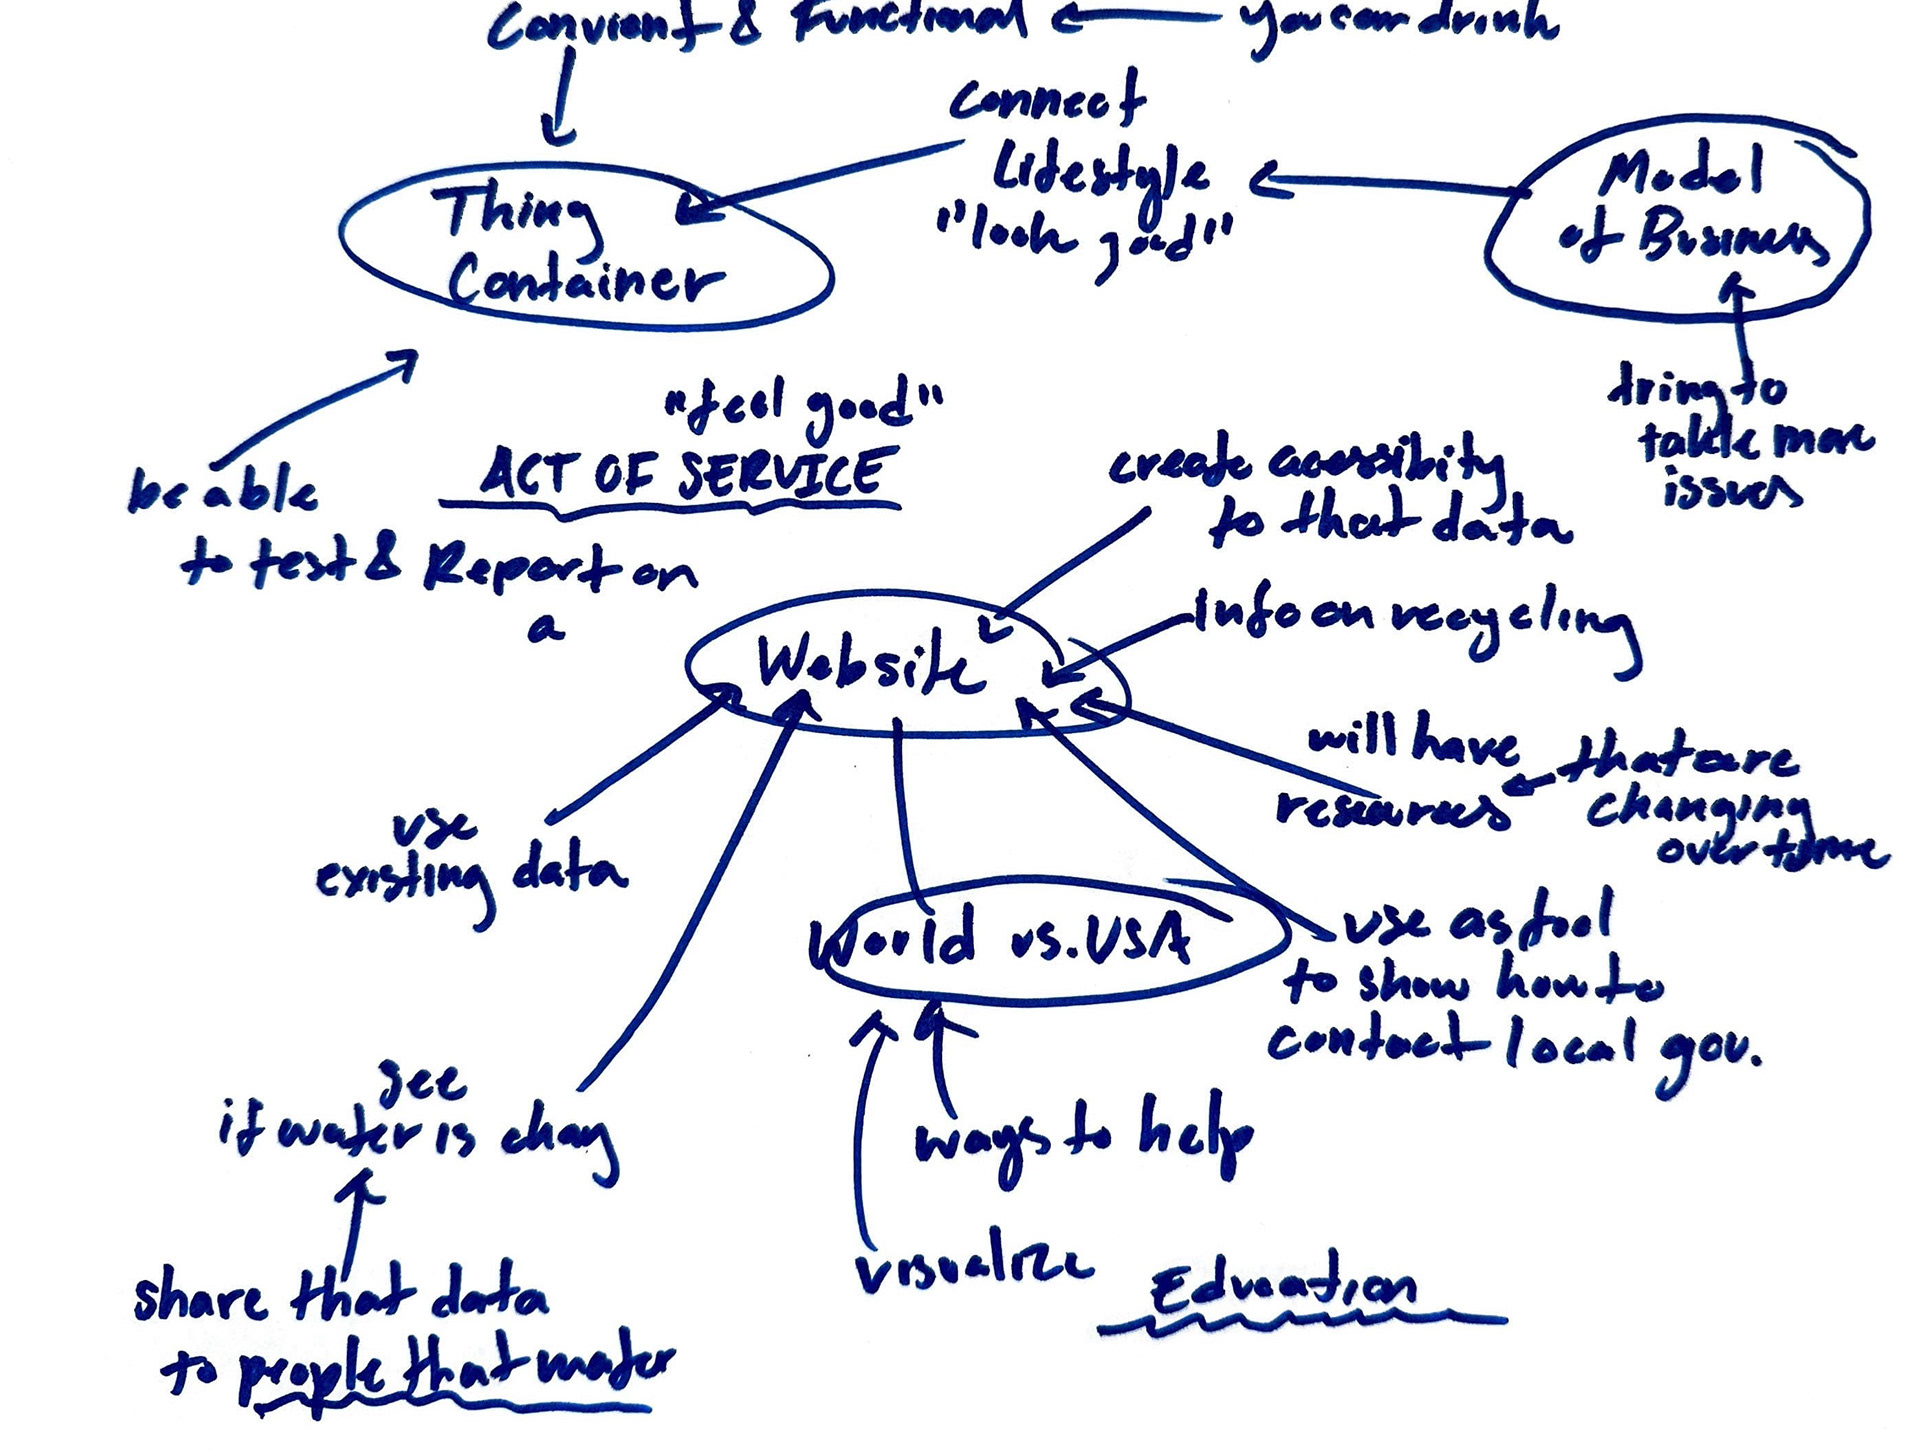 Convient & Functional
You can drink
connect
Lifestyle
"look good"
Model
of Business
Thing
Container
tring to
takle more
issues
"feel good"
ACT OF SERVICE
be able
to test & Report on
a
create acessibity
to that data
Info on recycling
Website
will have
resources
that are
changing
over time
use
existing data
World vs. USA
use as tool
to show how to
contact local gov.
see
if water is chag
ways to help
visualize
Education
share that data
to people that mater